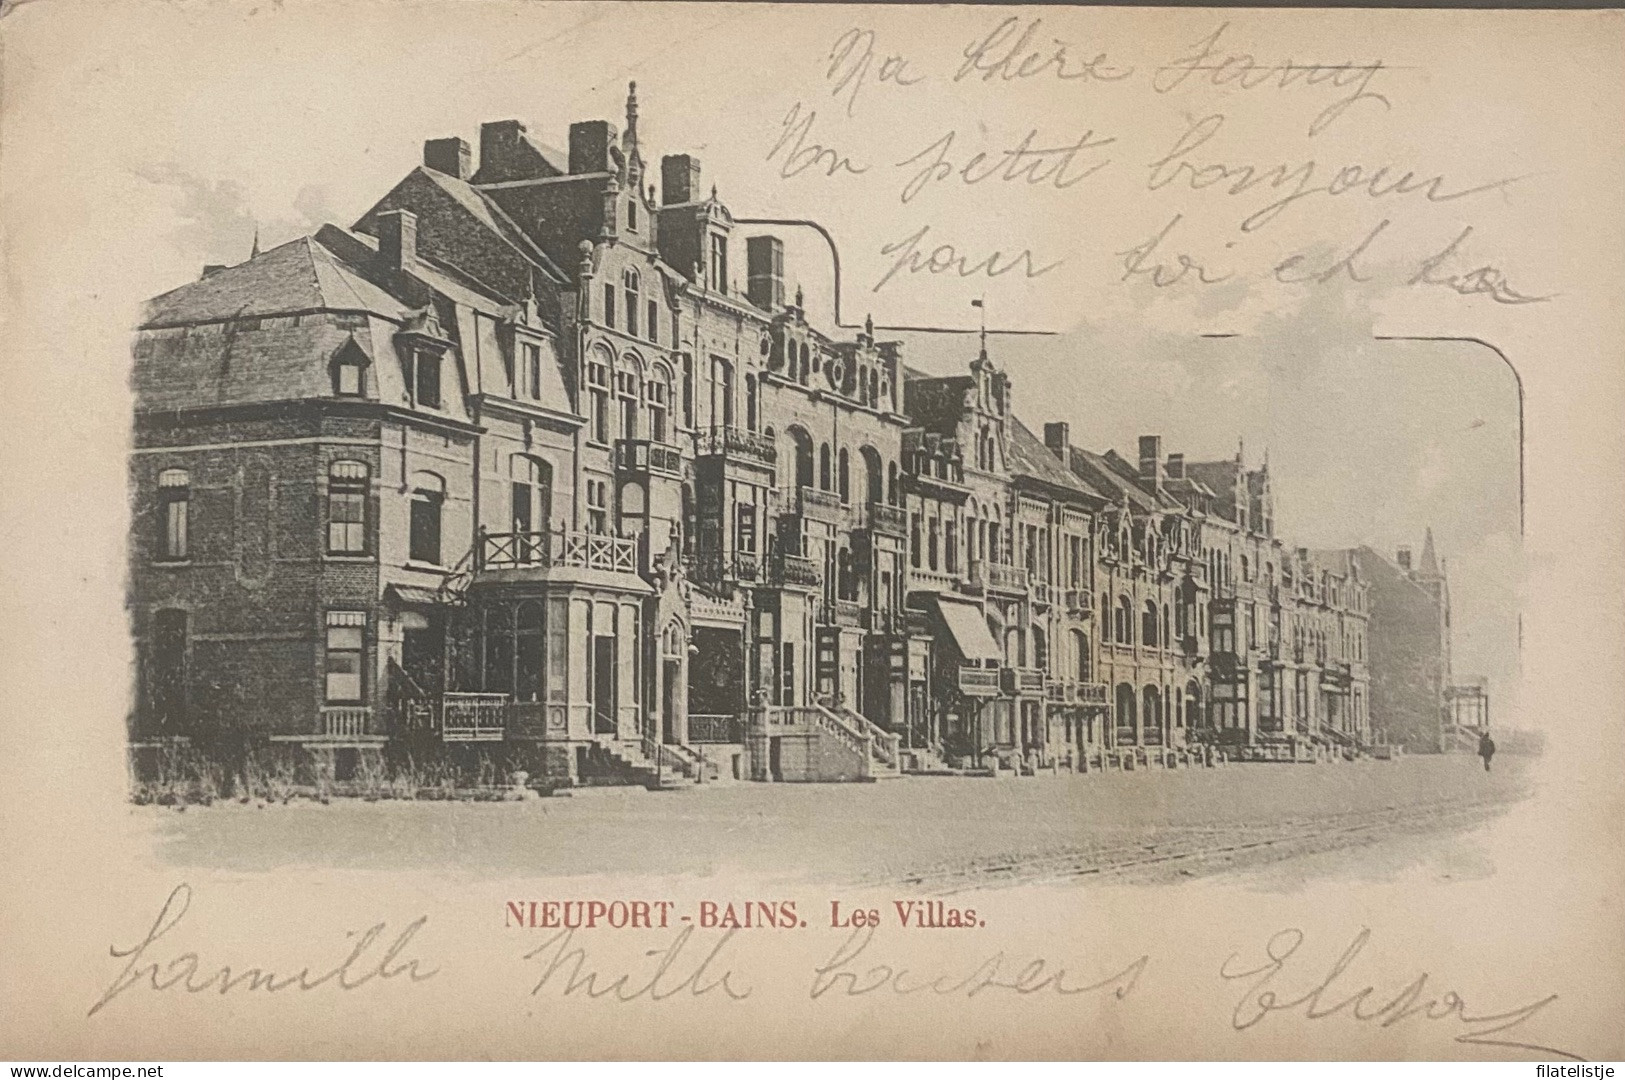 Ma Chère Fanny
Un petit bonjour
pour toi et ta
NIEUPORT-BAINS. Les Villas.
famille Mille baisers Elisa
delcampe.net
filatelistje